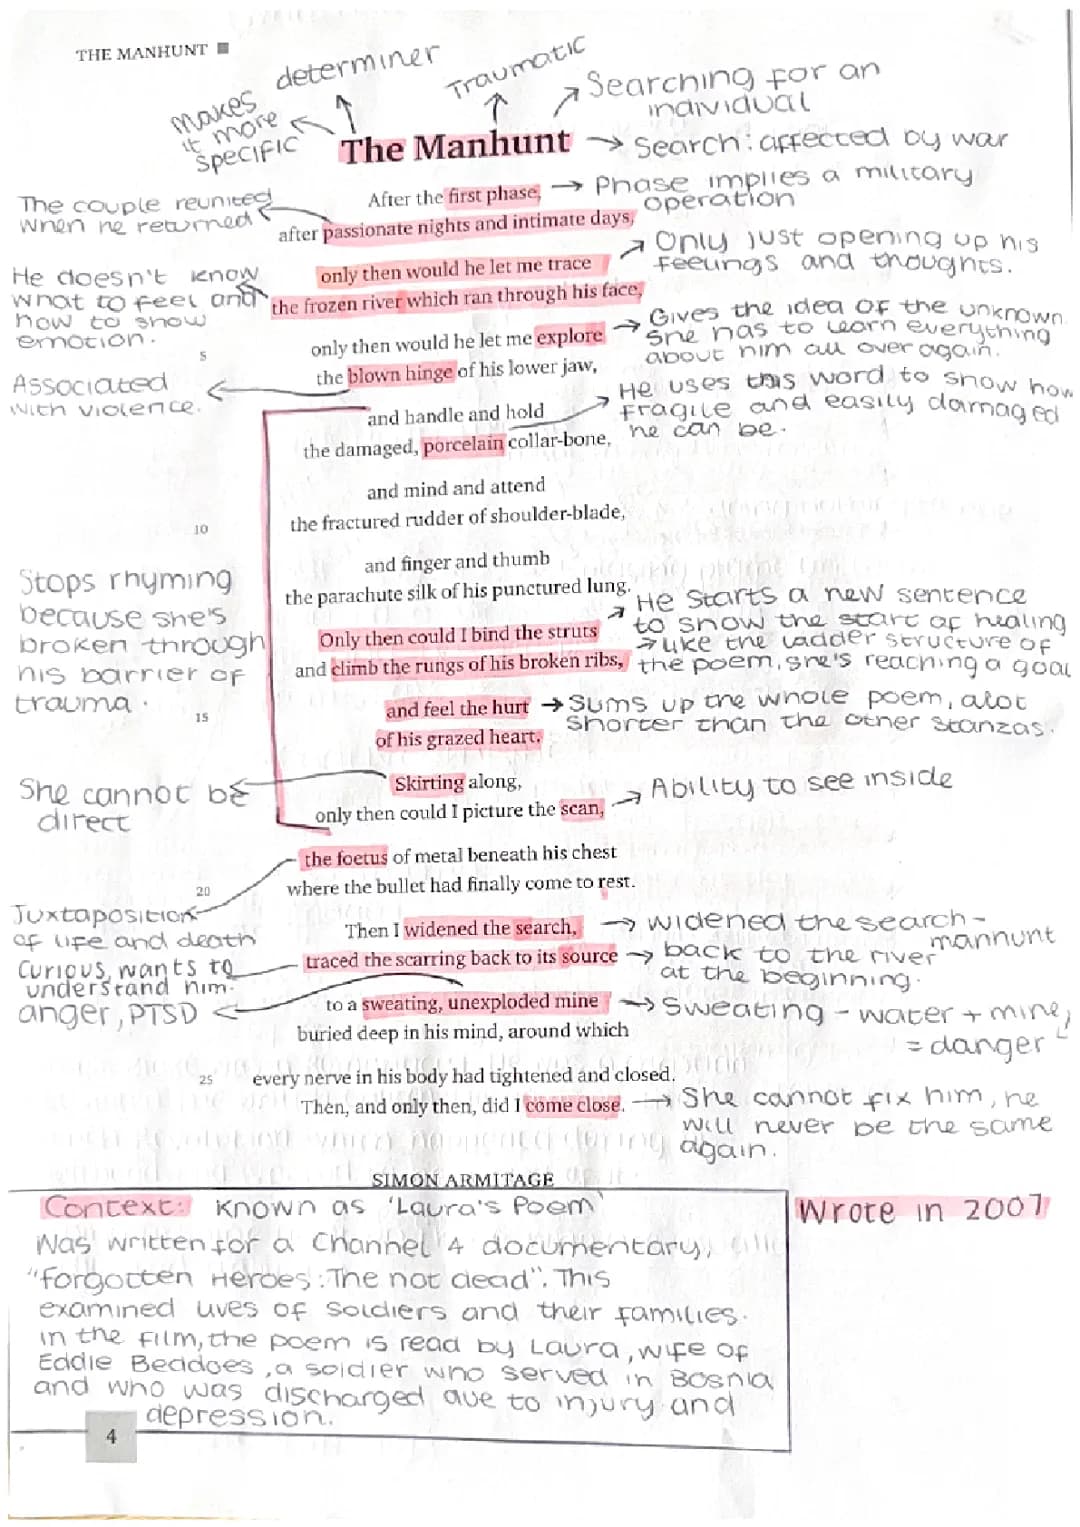 THE MANHUNT
determiner
Traumatic
Searching for an
individual
Makes
it more
specific
The Manhunt
Search: affected by war
The couple reunited
when he returned
After the first phase,
after passionate nights and intimate days,
Phase implies a military
operation
only then would he let me trace
the frozen river which ran through his face,
Only just opening up his
feelings and thoughts.
He doesn't know
what to feel and
how to show
emotion.
5
only then would he let me explore
the blown hinge of his lower jaw,
Gives the idea of the unknown
she has to learn everything
about him all over again.
Associated
with violence.
and handle and hold
the damaged, porcelain collar-bone,
He uses this word to show how
fragile and easily damaged
he can be.
and mind and attend
10
the fractured rudder of shoulder-blade,
and finger and thumb
the parachute silk of his punctured lung.
Stops rhyming
because she's
broken through
his barrier of
trauma.
Only then could I bind the struts
and climb the rungs of his broken ribs,
He starts a new sentence
to show the start of healing
like the ladder structure of
the poem, she's reaching a goal
15
and feel the hurt
of his grazed heart.
Sums up the whole poem, alot
shorter than the other stanzas.
She cannot be
direct
Skirting along,
only then could I picture the scan,
Ability to see inside
the foetus of metal beneath his chest
20
where the bullet had finally come to rest.
Juxtaposition
of life and death
Then I widened the search,
traced the scarring back to its source
widened the search -
manhunt
back to the river
at the beginning.
Curious, wants to
understand him.
anger, PTSD
to a sweating, unexploded mine
buried deep in his mind, around which
Sweating - water + mine,
= danger
25
every nerve in his body had tightened and closed.
Then, and only then, did I come close.
She cannot fix him, he
will never be the same
again.
SIMON ARMITAGE
Context: Known as 'Laura's Poem'
Was written for a Channel 4 documentary,
"forgotten Heroes: The not dead". This
examined lives of soldiers and their families.
in the film, the poem is read by Laura, wife of
Eddie Beddoes, a soldier who served in Bosnia
and who was discharged due to injury and
depression.
Wrote in 2007
4